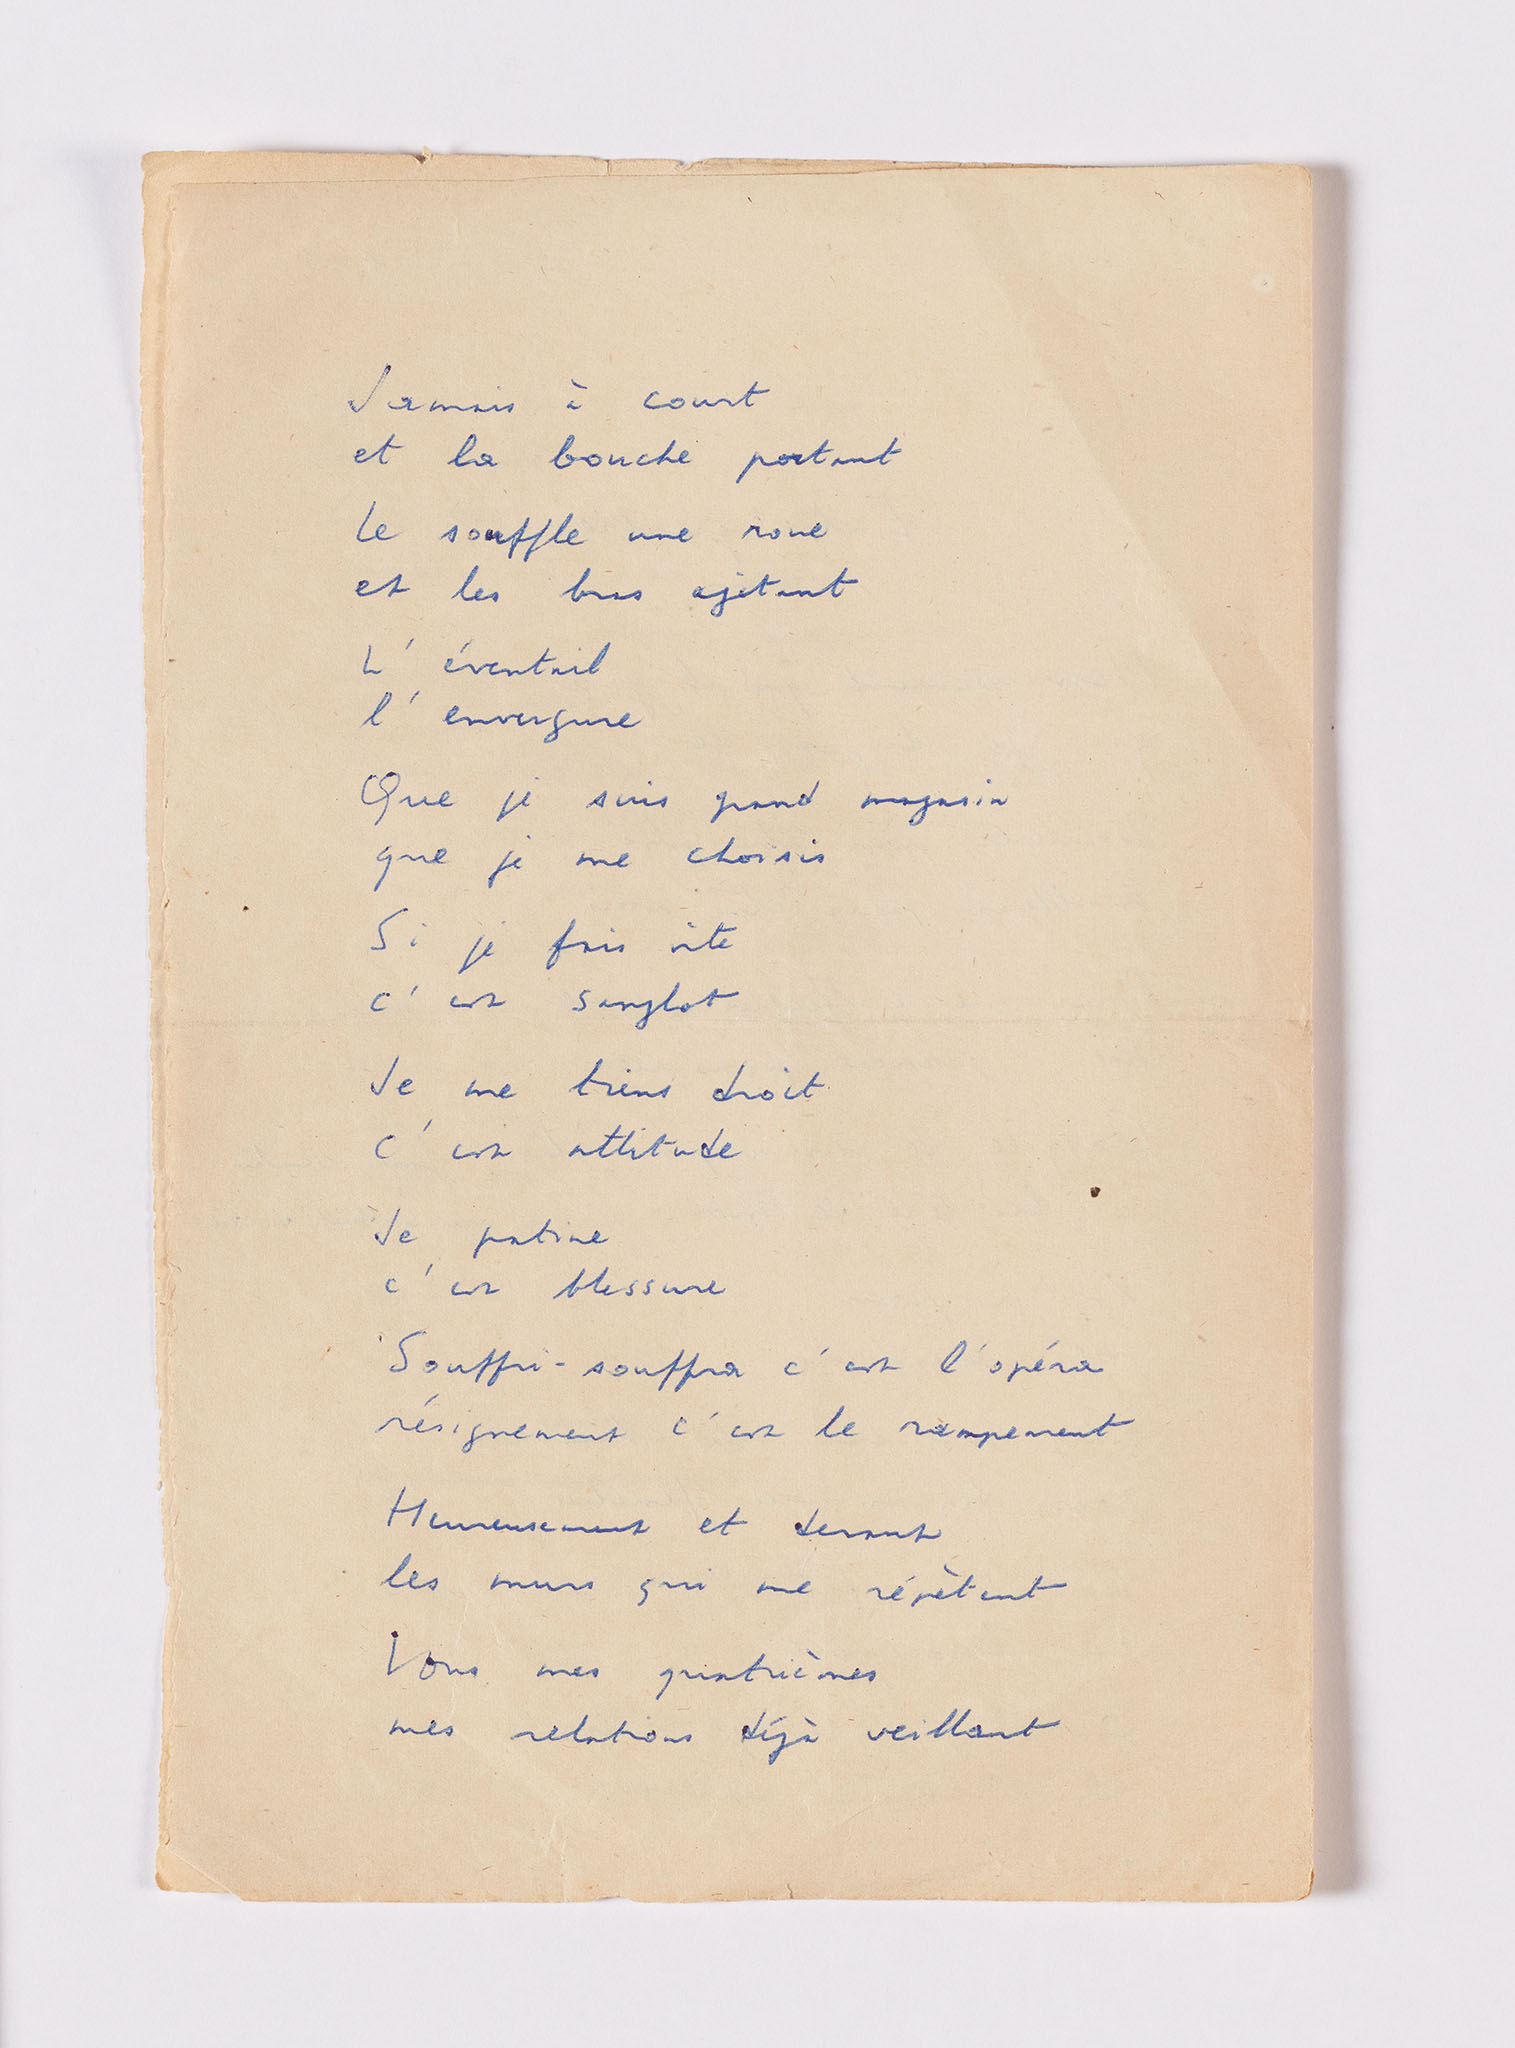 Jamais à court
et la bouche portant
Le souffle une roue
et les bras agitant
L'éventail
l'envergure
Que je suis grand magasin
que je me choisis
Si je fais vite
c'est sanglot
Je me tiens droit
c'est attitude
Je patine
c'est blessure
Souffri-souffra c'est l'opéra
résignement c'est le rampement
Heureusement et devant
les murs qui me répètent
Vous mes quatrièmes
mes relations déjà veillant